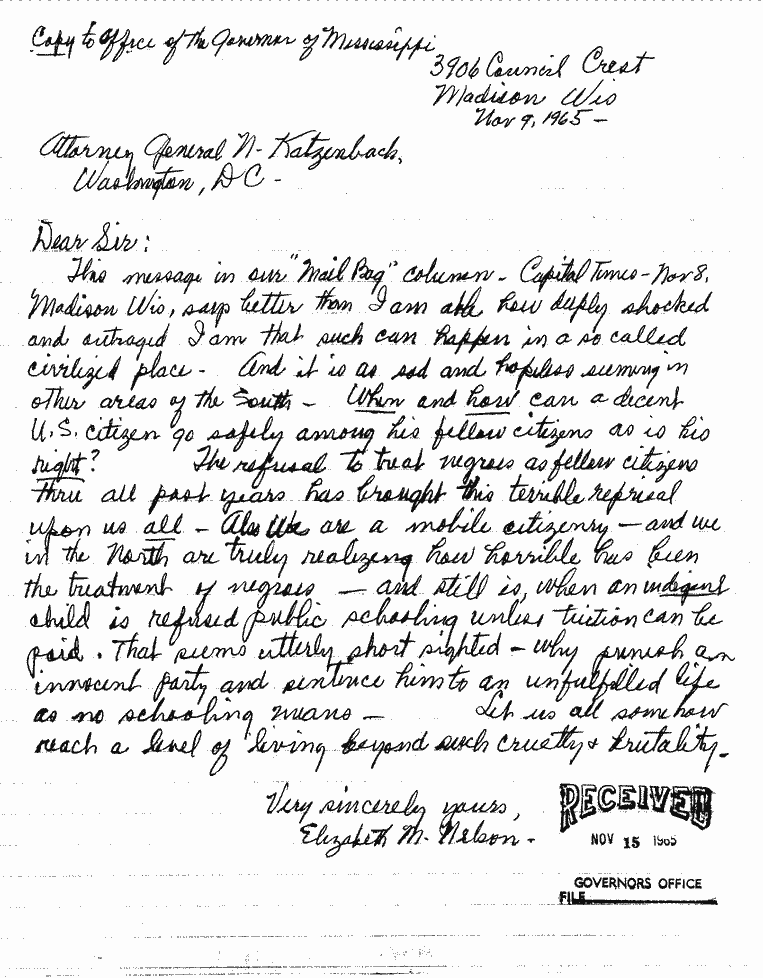 Copy to Office of the Governor of Mississippi
3906 Council Crest
Madison Wis
Nov 9, 1965 -
Attorney General N. Katzenbach,
Washington, D C -
Dear Sir:
This message in our "Mail Bag" column - Capital Times - Nov 8,
Madison Wis, says better than I am able how deeply shocked
and outraged I am that such can happen in a so called
civilized place - And it is as sad and hopeless seeming in
other areas of the South - When and how can a decent
U.S. citizen go safely among his fellow citizens as is his
right? The refusal to treat negroes as fellow citizens
thru all past years has brought this terrible reprisal
upon us all - Also We are a mobile citizenry - and we
in the North are truly realizing how horrible has been
the treatment of negroes - and still is, when an indigent
child is refused public schooling unless tuition can be
paid. That seems utterly short sighted - why punish an
innocent party and sentence him to an unfulfilled life
as no schooling means - Let us all somehow
reach a level of living beyond such cruelty & brutality -
Very sincerely yours,
Elizabeth M. Nelson -
RECEIVED
NOV 15 1965
GOVERNORS OFFICE
FILE